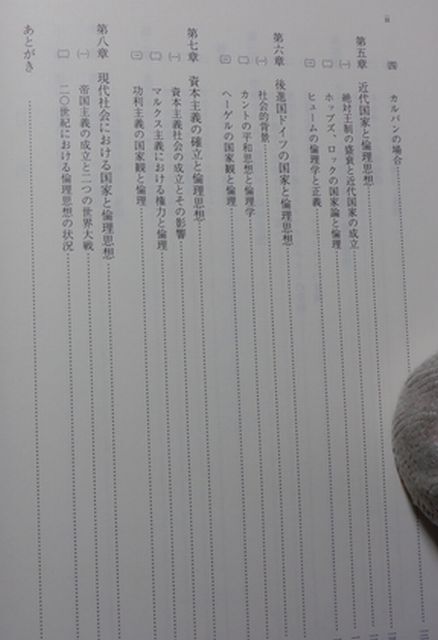 ii
四 カルバンの場合
第五章 近代国家と倫理思想
(一) 絶対王制の盛衰と近代国家の成立
(二) ホッブズ、ロックの国家論と倫理
(三) ヒュームの倫理学と正義
第六章 後進国ドイツの国家と倫理思想
(一) 社会的背景
(二) カントの平和思想と倫理学
(三) ヘーゲルの国家観と倫理
第七章 資本主義の確立と倫理思想
(一) 資本主義社会の成立とその影響
(二) マルクス主義における権力と倫理
(三) 功利主義の国家観と倫理
第八章 現代社会における国家と倫理思想
(一) 帝国主義の成立と二つの世界大戦
(二) 二〇世紀における倫理思想の状況
あとがき